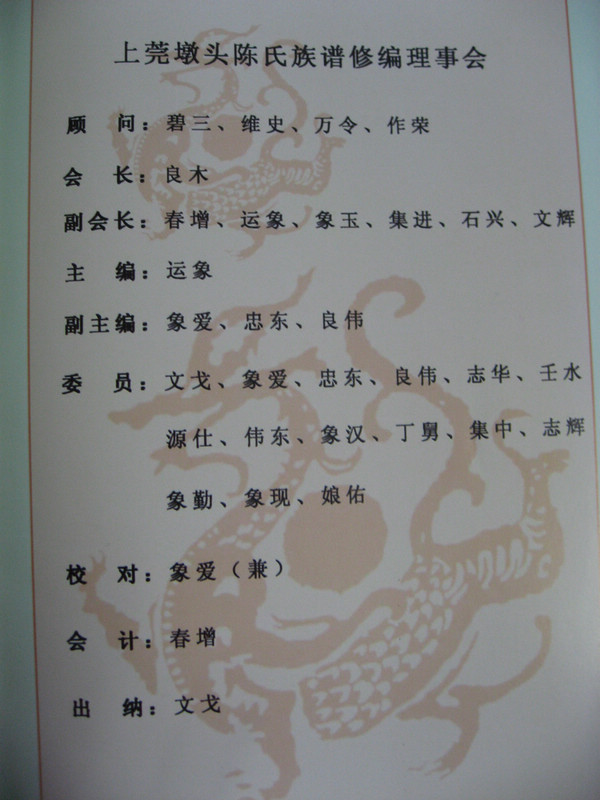 上莞墩头陈氏族谱修编理事会
顾 问：碧三、维史、万令、作荣
会 长：良木
副会长：春增、运象、象玉、集进、石兴、文辉
主 编：运象
副主编：象爱、忠东、良伟
委 员：文戈、象爱、忠东、良伟、志华、壬水
源仕、伟东、象汉、丁舅、集中、志辉
象勤、象现、娘佑
校 对：象爱（兼）
会 计：春增
出 纳：文戈